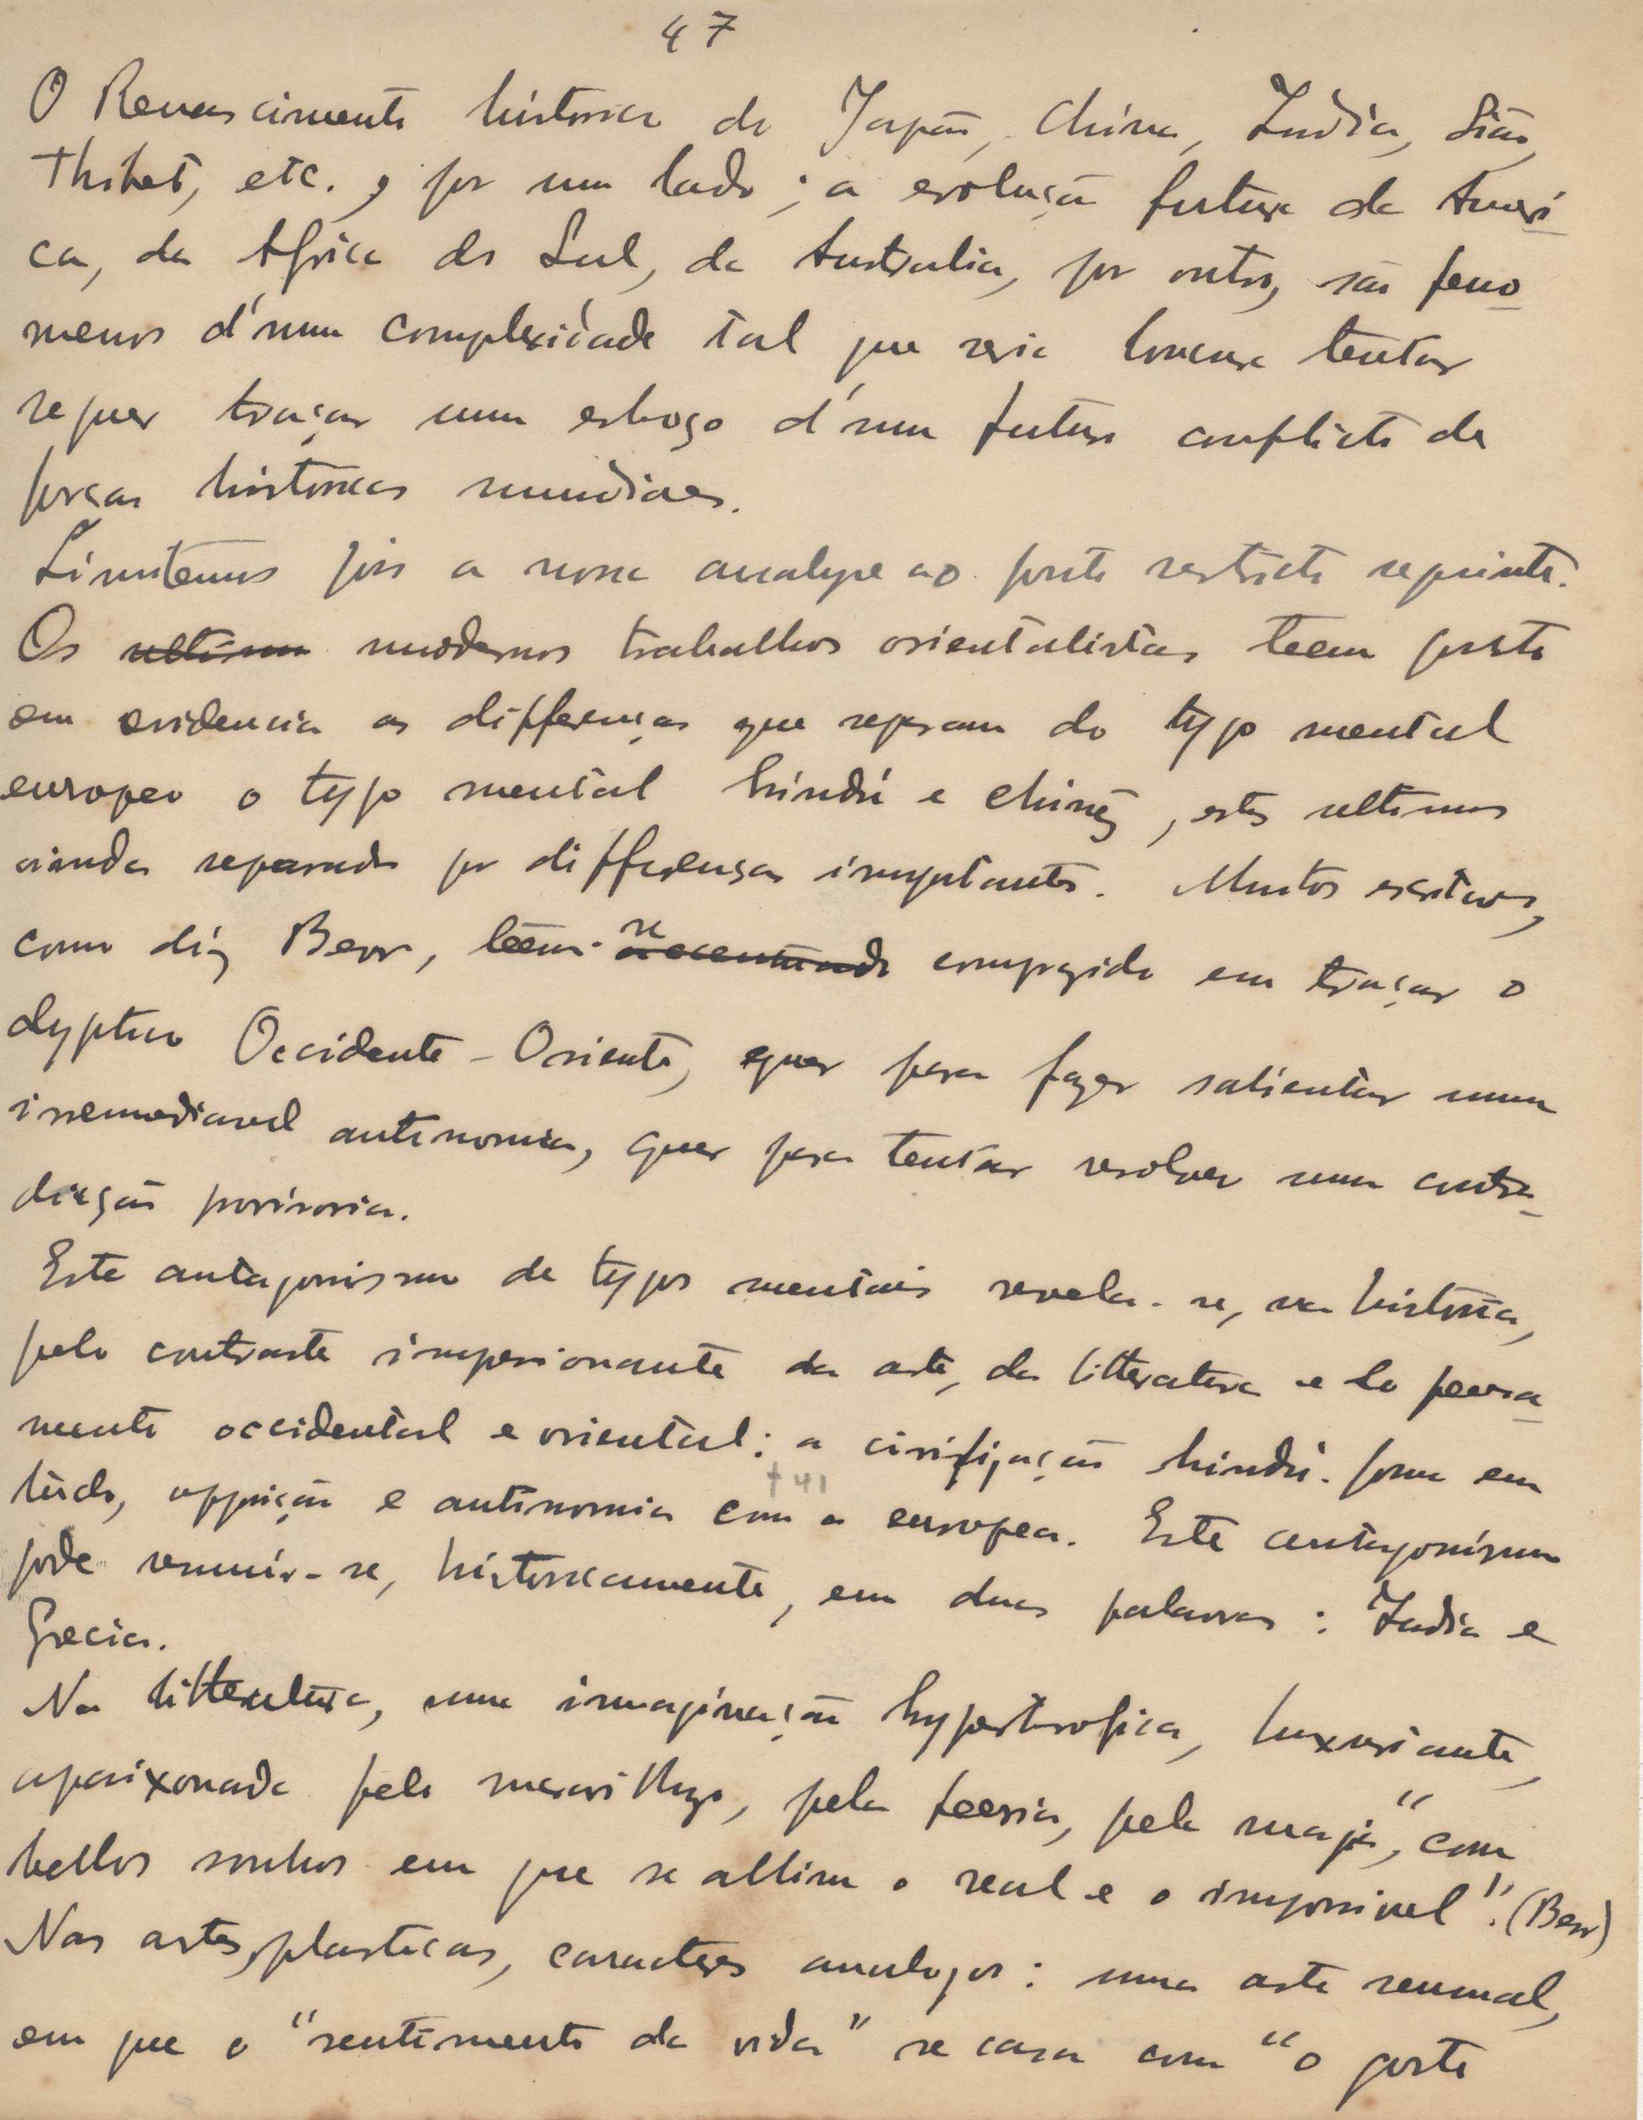 47
O Renascimento historico do Japão, China, India, Sião,
Thibet, etc., por um lado; a evolução futura da Ameri
ca, da Africa do Sul, da Australia, por outro, são feno
menos d'uma complexidade tal que seria loucura tentar
sequer traçar um esboço d'um futuro conflicto de
forças historicas mundiaes.
Limitemos pois a nossa analyse ao ponto restricto seguinte.
Os ultimos modernos trabalhos orientalistas teem posto
em evidencia as differenças que separam do typo mental
europeu o typo mental hindú e chinez, estes ultimos
ainda separados por differenças importantes. Muitos escritores,
como diz Berr, teem-se accentuado comprazido em traçar o
dyptico Occidente-Oriente, quer para fazer salientar uma
irremediavel antinomia, quer para tentar resolver uma contra-
dicção provisoria.
Este antagonismo de typos mentais revela-se, na historia,
pelo contraste impressionante da arte, da litteratura e do pensa
mento occidental e oriental: a civilização hindú. forma em
† 41
tudo, opposição e antinomia com a europea. Este antagonismo
pode resumir-se, historicamente, em duas palavras: India e
Grecia.
Na litteratura, uma imaginação hypertrofica, luxuriante,
apaixonada pelo maravilhoso, pela feeria, pela magia, "com
bellos sonhos em que se alliam o real e o impossivel". (Berr)
Nas artes plasticas, caracteres analogos: uma arte sensual,
em que o "sentimento da vida" se casa com "o gosto